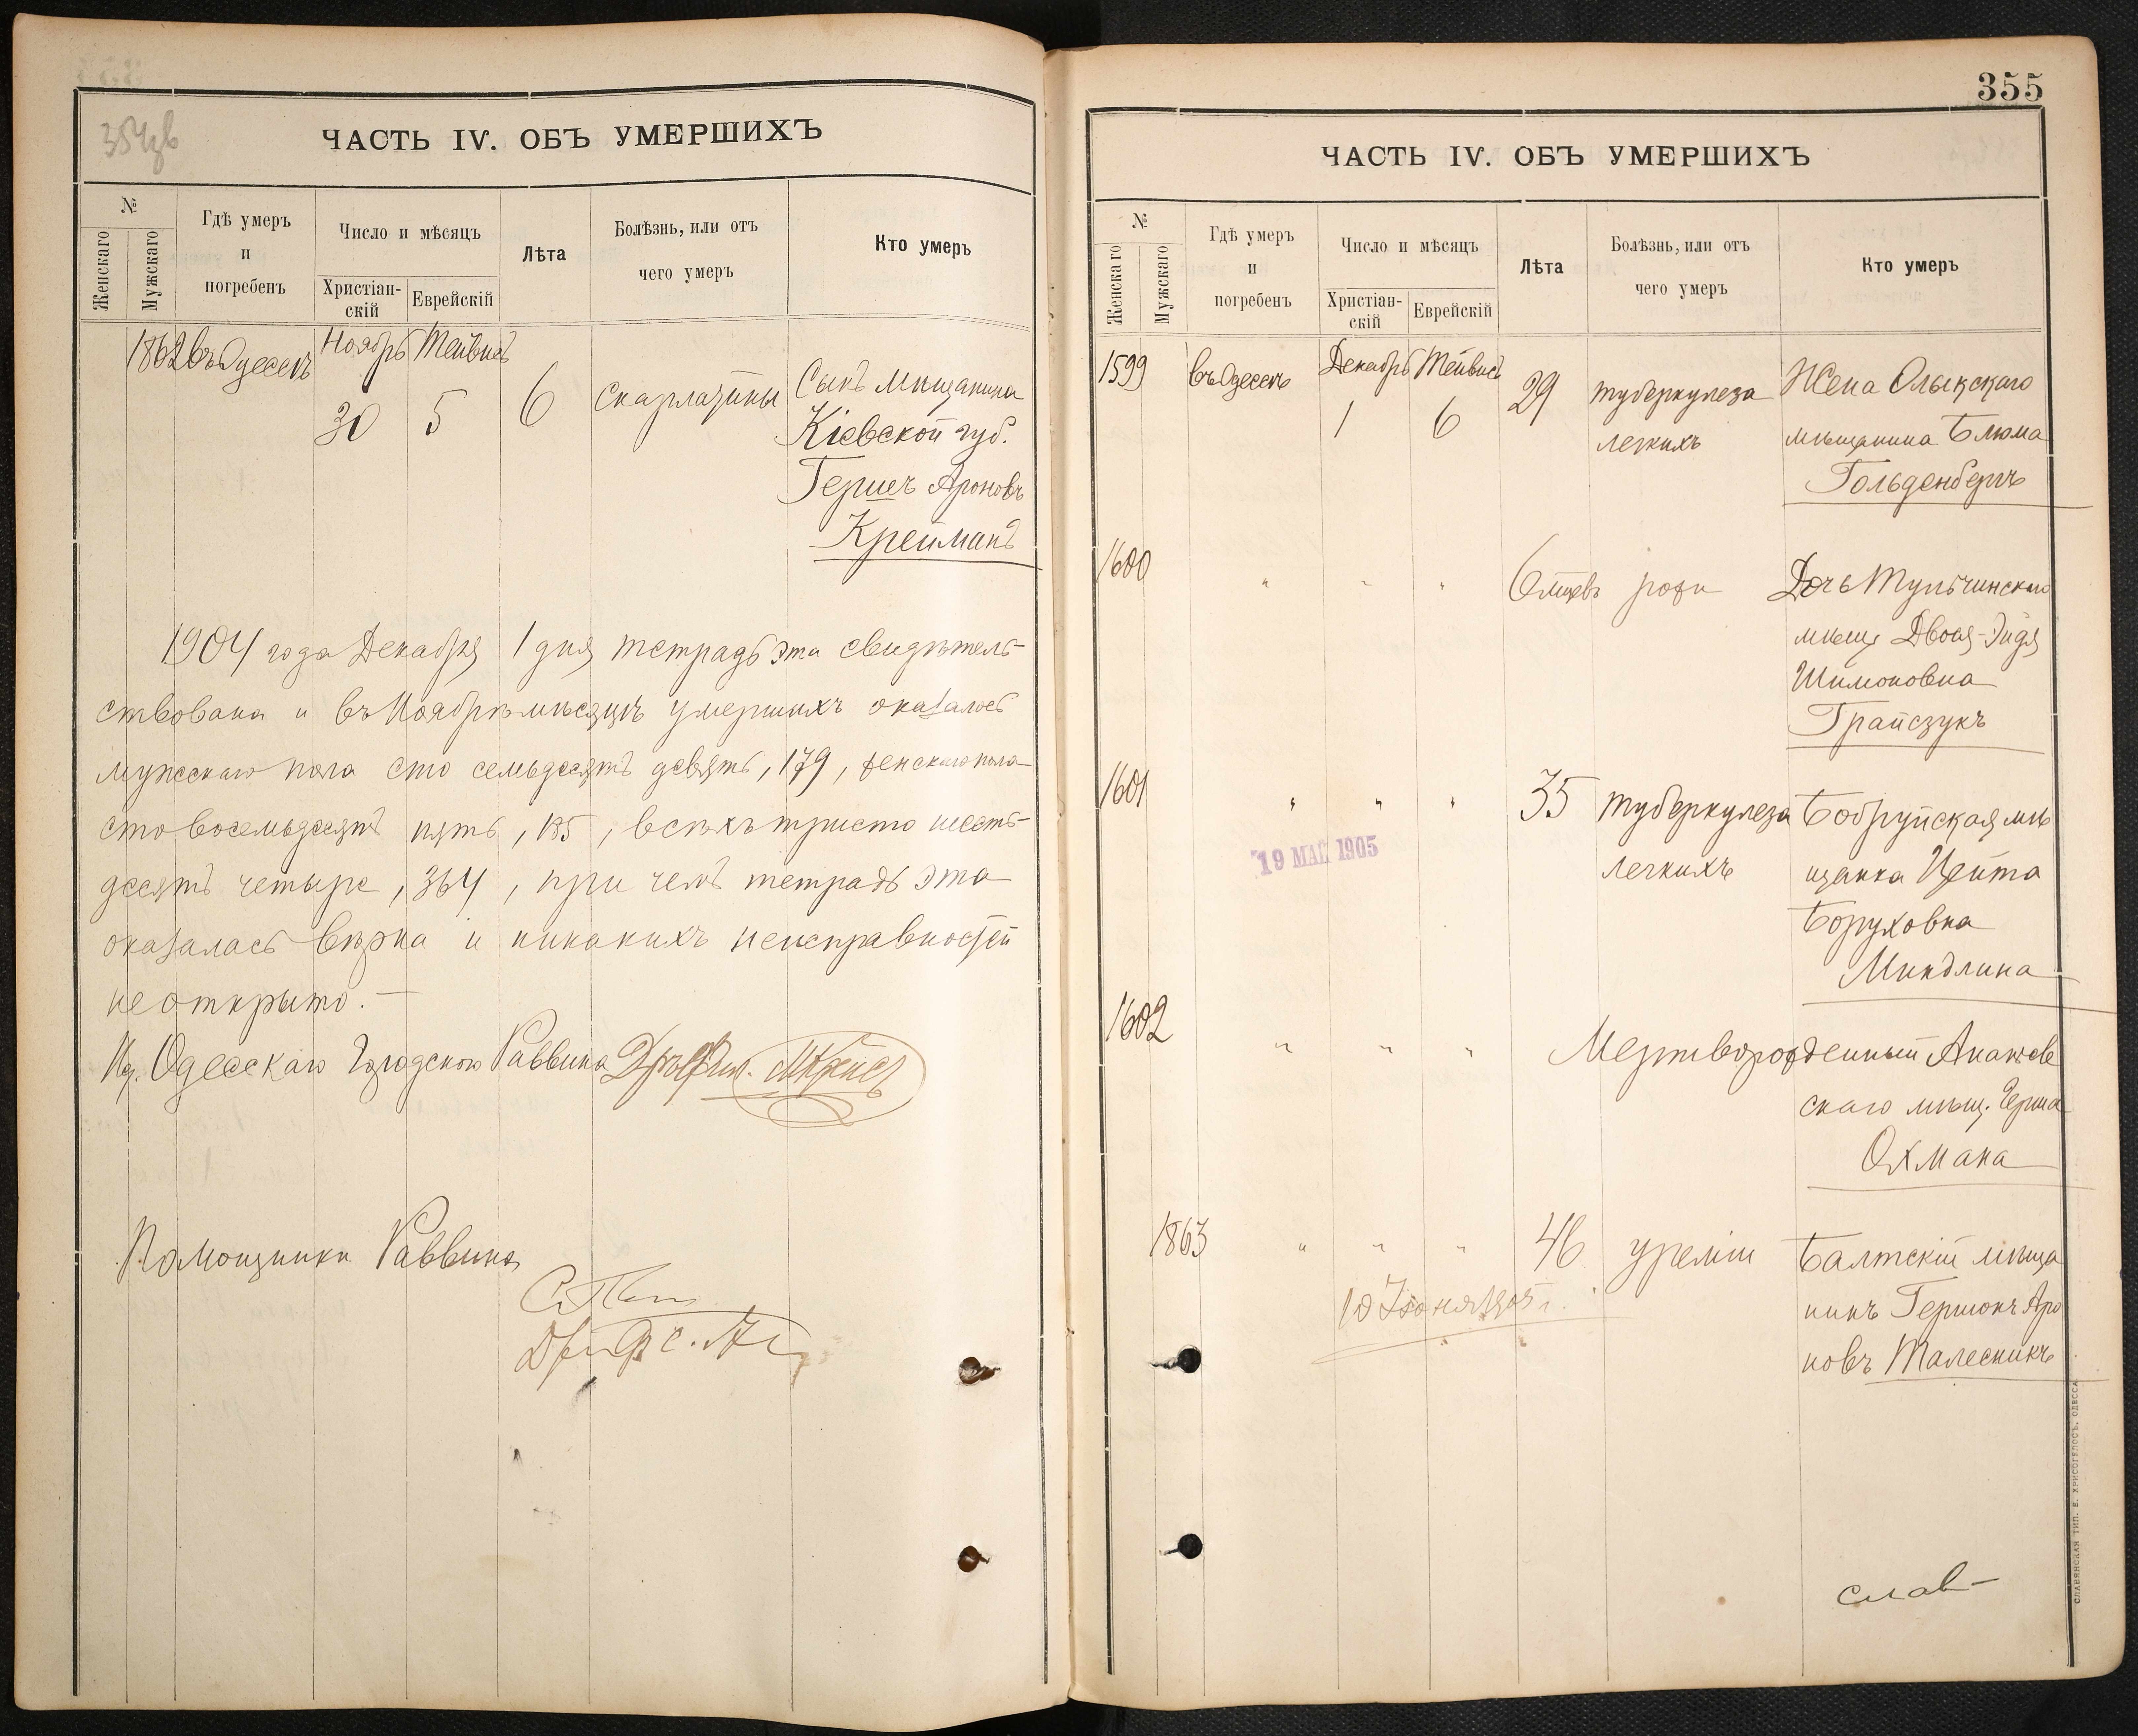 ЧАСТЬ IV. ОБЪ УМЕРШИХЪ
№
Женскаго
Мужскаго
Гдѣ умеръ
и
погребенъ
Число и мѣсяцъ
Христіан-
скій
Еврейскій
Лѣта
Болѣзнь, или отъ
чего умеръ
Кто умеръ
1862 въ Одессѣ Ноябрь Тейвисъ
30 5 6 Скарлатины Сынъ мѣщанина
Кіевской губ.
Гершъ Ароновъ
Крейманъ
1904 года Декабря 1 дня тетрадь эта свидѣтель-
ствована и въ Ноябрѣ мѣсяцѣ умершихъ оказалось
мужскаго пола сто семьдесятъ девять, 179, женскаго пола
сто восемьдесятъ пять, 185, всѣхъ триста шесть-
десятъ четыре, 364, при чемъ тетрадь эта
оказалась вѣрна и никакихъ неисправностей
не открыто.—
Одесскаго Городского Раввина
Помощники Раввина
355
ЧАСТЬ IV. ОБЪ УМЕРШИХЪ
№
Женскаго
Мужскаго
Гдѣ умеръ
и
погребенъ
Число и мѣсяцъ
Христіан-
скій
Еврейскій
Лѣта
Болѣзнь, или отъ
чего умеръ
Кто умеръ
1599 въ Одессѣ Декабрь Тейвисъ 29 туберкулеза Жена Олыкскаго
1 6 легкихъ мѣщанина Блюма
Гольденбергъ
1600 " " " 6 мцевъ рожи Дочь Тульчинскаго
мѣщ Двоя-Эйдя
Шимоновна
Грайсзукъ
1601 " " " 35 туберкулеза Бобруйская мѣ
19 МАЙ 1905
легкихъ щанка Цейта
Боруховна
Миндлина
1602 " " " Мертворожденный Ананьев
скаго мѣщ. Герша
Охмана
1863 " " " 46 уреміи Балтскій мѣща
нинъ Гершонъ Аро
новъ Талесникъ
слав-
СЛАВЯНСКАЯ ТИП. Е. ХРИСОГЕЛОСЪ, ОДЕССА